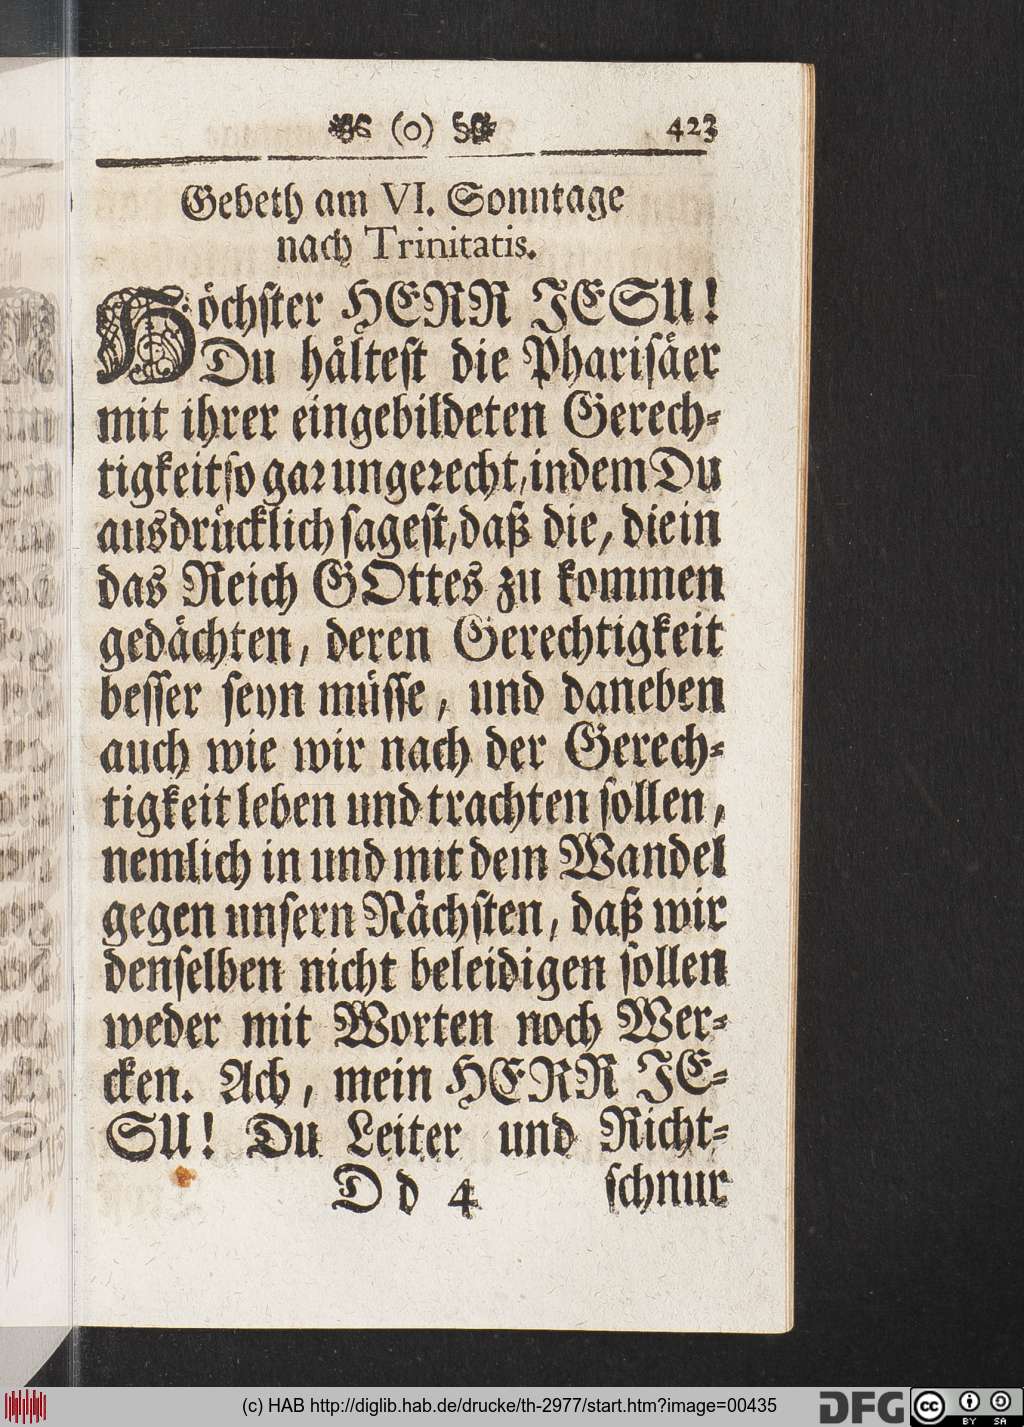 (o) 423
Gebeth am VI. Sonntage
nach Trinitatis.
Höchster HERR JESU!
Du hältest die Pharisäer
mit ihrer eingebildeten Gerech-
tigkeit so gar ungerecht, indem Du
ausdrücklich sagest, daß die, die in
das Reich GOttes zu kommen
gedächten, deren Gerechtigkeit
besser seyn müsse, und daneben
auch wie wir nach der Gerech-
tigkeit leben und trachten sollen,
nemlich in und mit dem Wandel
gegen unsern Nächsten, daß wir
denselben nicht beleidigen sollen
weder mit Worten noch Wer-
cken. Ach, mein HERR JE-
SU! Du Leiter und Richt-
D d 4 schnur
(c) HAB http://diglib.hab.de/drucke/th-2977/start.htm?image=00435
DFG cc BY SA